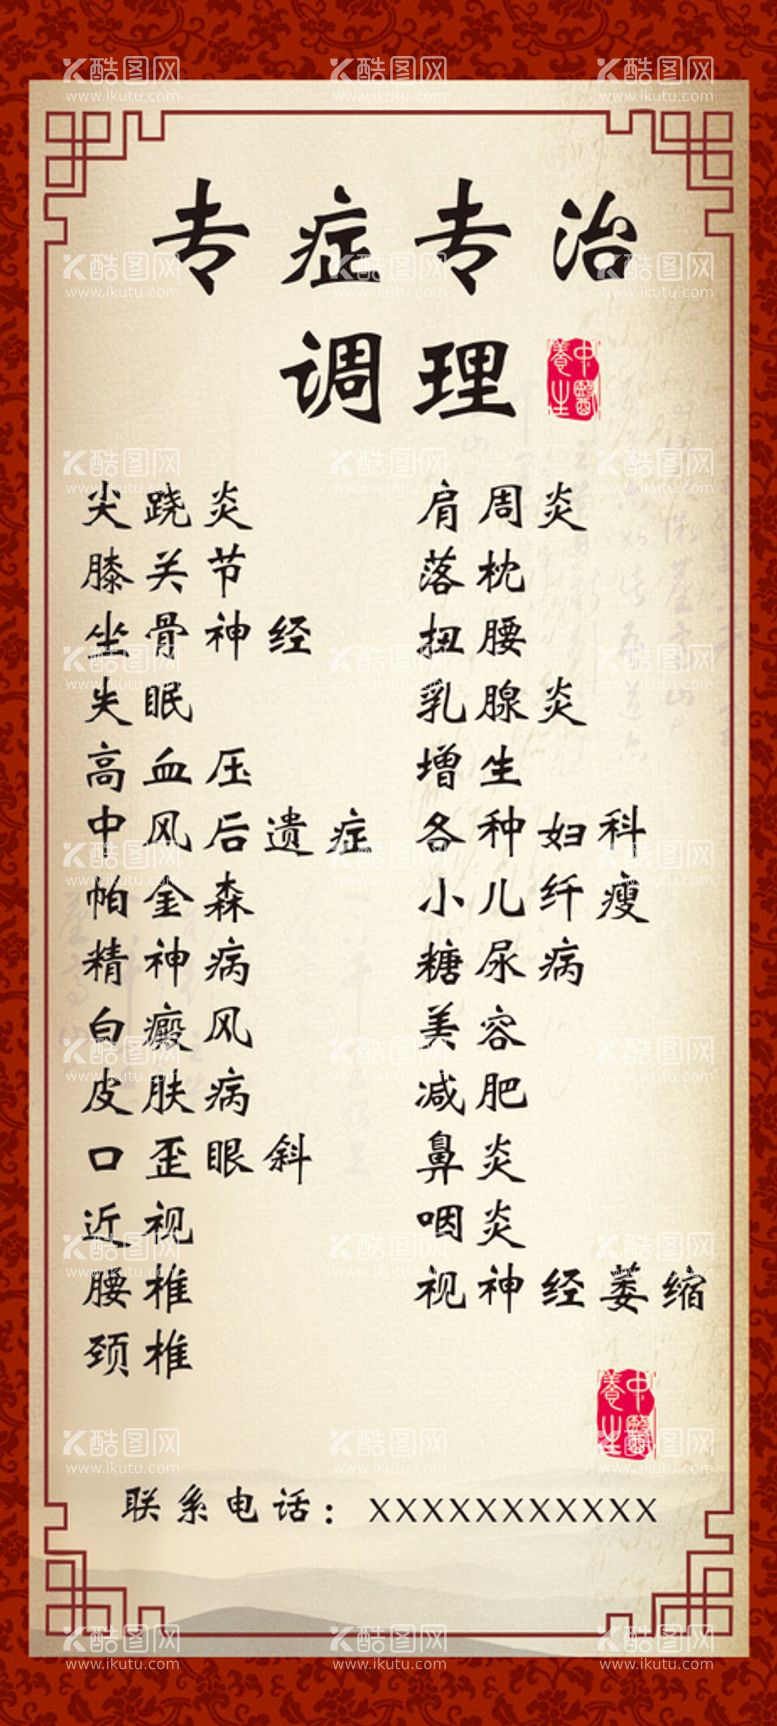 专症专治
调理
中醫養生
尖跷炎
膝关节
坐骨神经
失眠
高血压
中风后遗症
帕金森
精神病
白癜风
皮肤病
口歪眼斜
近视
腰椎
颈椎
肩周炎
落枕
扭腰
乳腺炎
增生
各种妇科
小儿纤瘦
糖尿病
美容
减肥
鼻炎
咽炎
视神经萎缩
中醫養生
联系电话：XXXXXXXXXXX
酷图网
www.ikutu.com